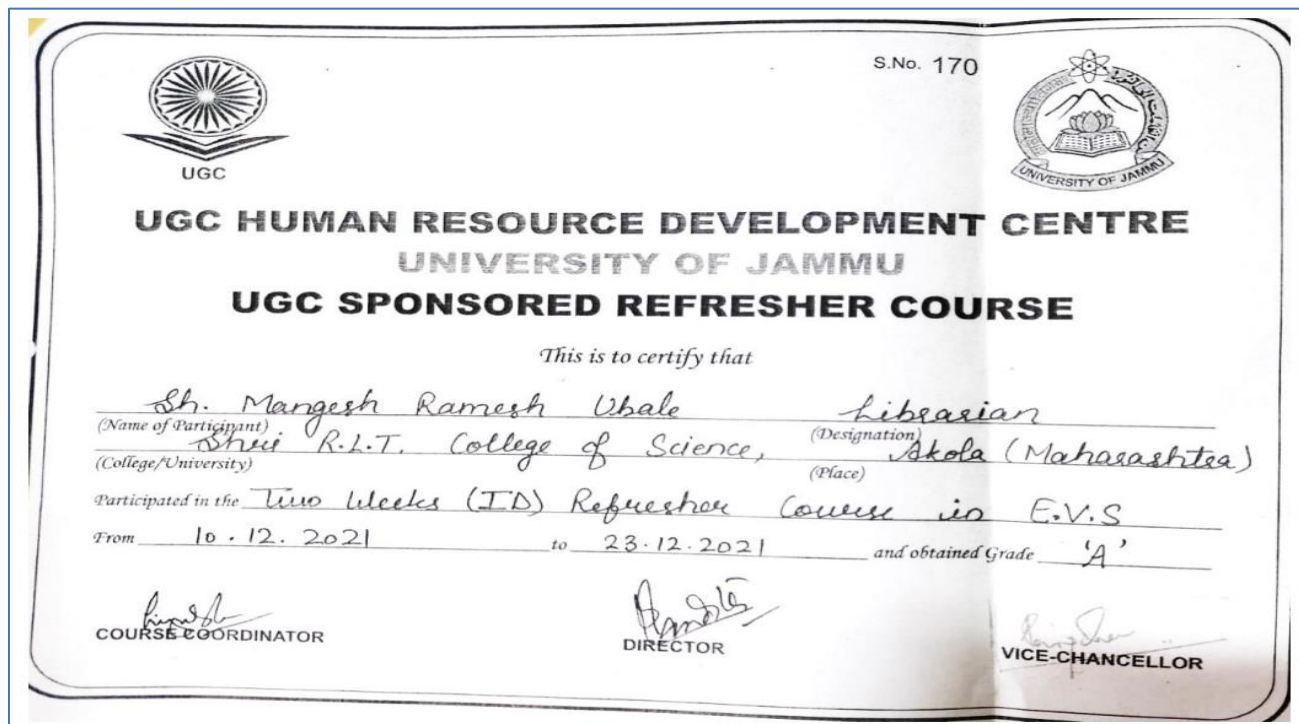 S.No. 170
UGC
UNIVERSITY OF JAMMU
UGC HUMAN RESOURCE DEVELOPMENT CENTRE
UNIVERSITY OF JAMMU
UGC SPONSORED REFRESHER COURSE
This is to certify that
Sh. Mangesh Ramesh Ubale Librarian
(Name of Participant) (Designation)
Shri R.L.T. College of Science, Akola (Maharashtra)
(College/University) (Place)
Participated in the Two Weeks (ID) Refresher Course in E.V.S
From 10.12.2021 to 23.12.2021 and obtained Grade 'A'
COURSE COORDINATOR DIRECTOR VICE-CHANCELLOR